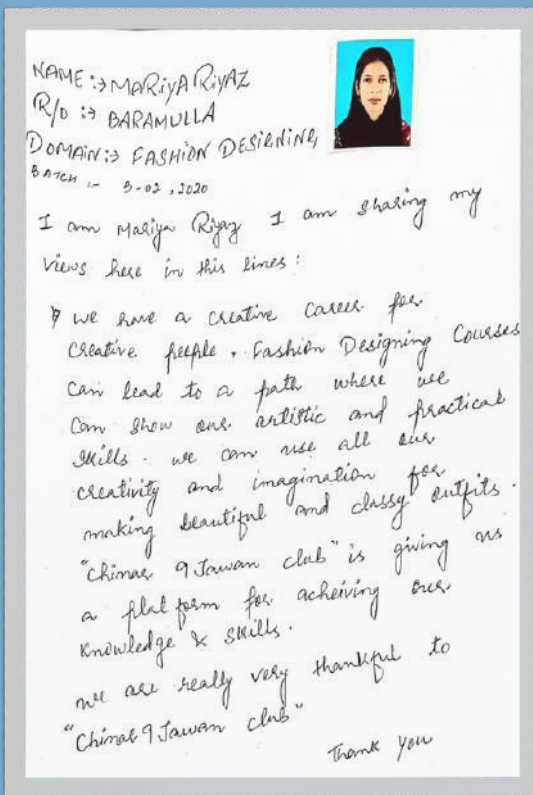 NAME :→ MARiYA RiYAZ
R/O :→ BARAMULLA
DOMAiN :→ FASHiON DESIGNiNG
BATCH :- 3-02, 2020
I am Mariya Riyaz I am sharing my
views here in this lines :
we have a creative career for
creative people. Fashion Designing Courses
can lead to a path where we
can show our artistic and practical
skills. we can use all our
creativity and imagination for
making beautiful and classy outfits.
"Chinar 9 Jawan club" is giving us
a platform for acheiving our
knowledge & skills.
we are really very thankful to
"Chinar 9 Jawan club"
Thank you